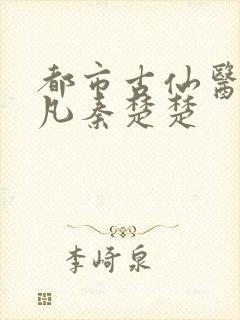 都市古仙醫
凡秦楚楚
李崎泉